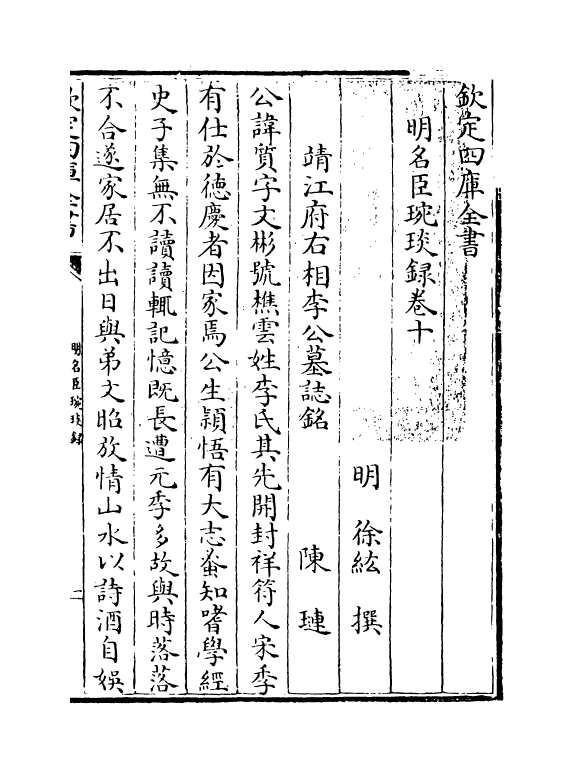 欽定四庫全書
明名臣琬琰録卷十
明 徐紘 撰
靖江府右相李公墓誌銘 陳璉
公諱質字文彬號樵雲姓李氏其先開封祥符人宋季
有仕於徳慶者因家焉公生穎悟有大志蚤知嗜學經
史子集無不讀讀輒記憶既長遭元季多故與時落落
不合遂家居不出日與弟文昭放情山水以詩酒自娛
欽定四庫全書
明名臣琬琰録